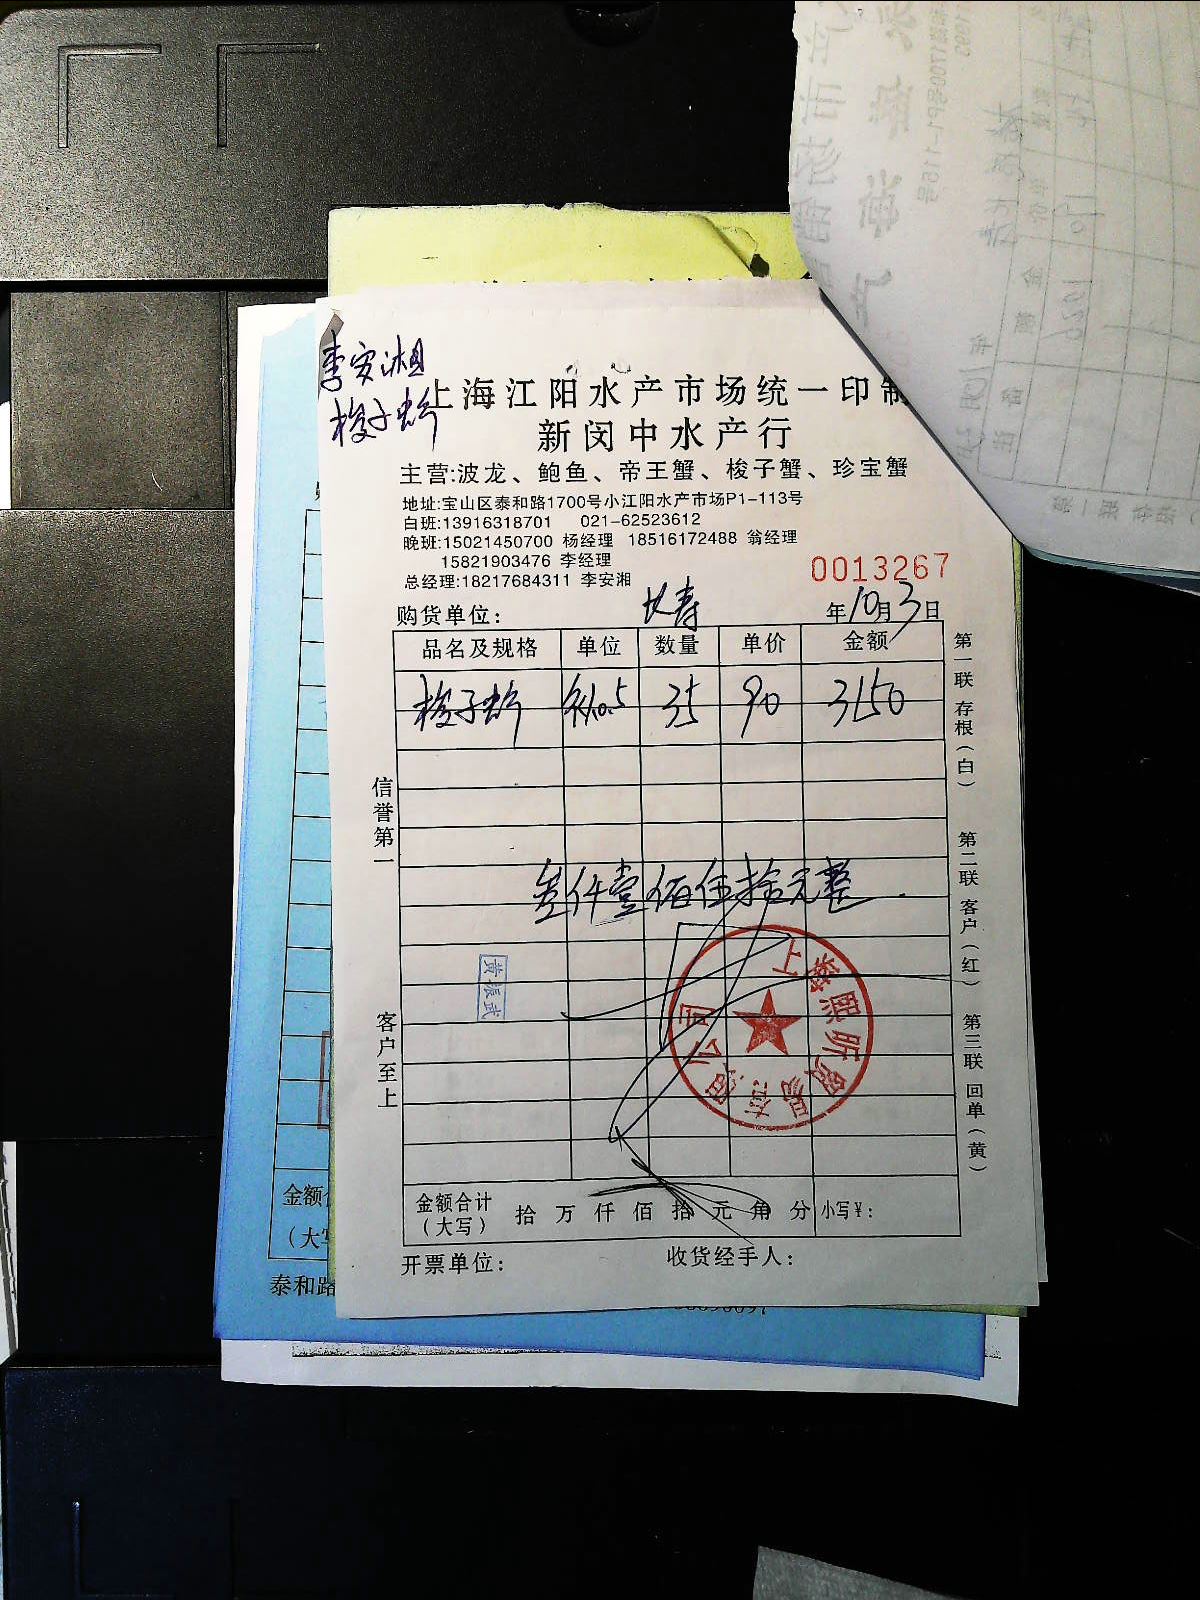 李安湘
梭子蟹
上海江阳水产市场统一印制
新闵中水产行
主营:波龙、鲍鱼、帝王蟹、梭子蟹、珍宝蟹
地址:宝山区泰和路1700号小江阳水产市场P1-113号
白班:13916318701 021-62523612
晚班:15021450700 杨经理 18516172488 翁经理
15821903476 李经理
总经理:18217684311 李安湘
0013267
购货单位: 长寿 年10月3日
品名及规格 单位 数量 单价 金额
梭子蟹 35 90 3150
叁仟壹佰伍拾元整
信誉第一
客户至上
黄振武
上海熙昕贸易有限公司
第一联 存根(白)
第二联 客户(红)
第三联 回单(黄)
金额合计
(大写) 拾 万 仟 佰 拾 元 角 分 小写¥:
开票单位: 收货经手人:
金额
(大写
泰和路